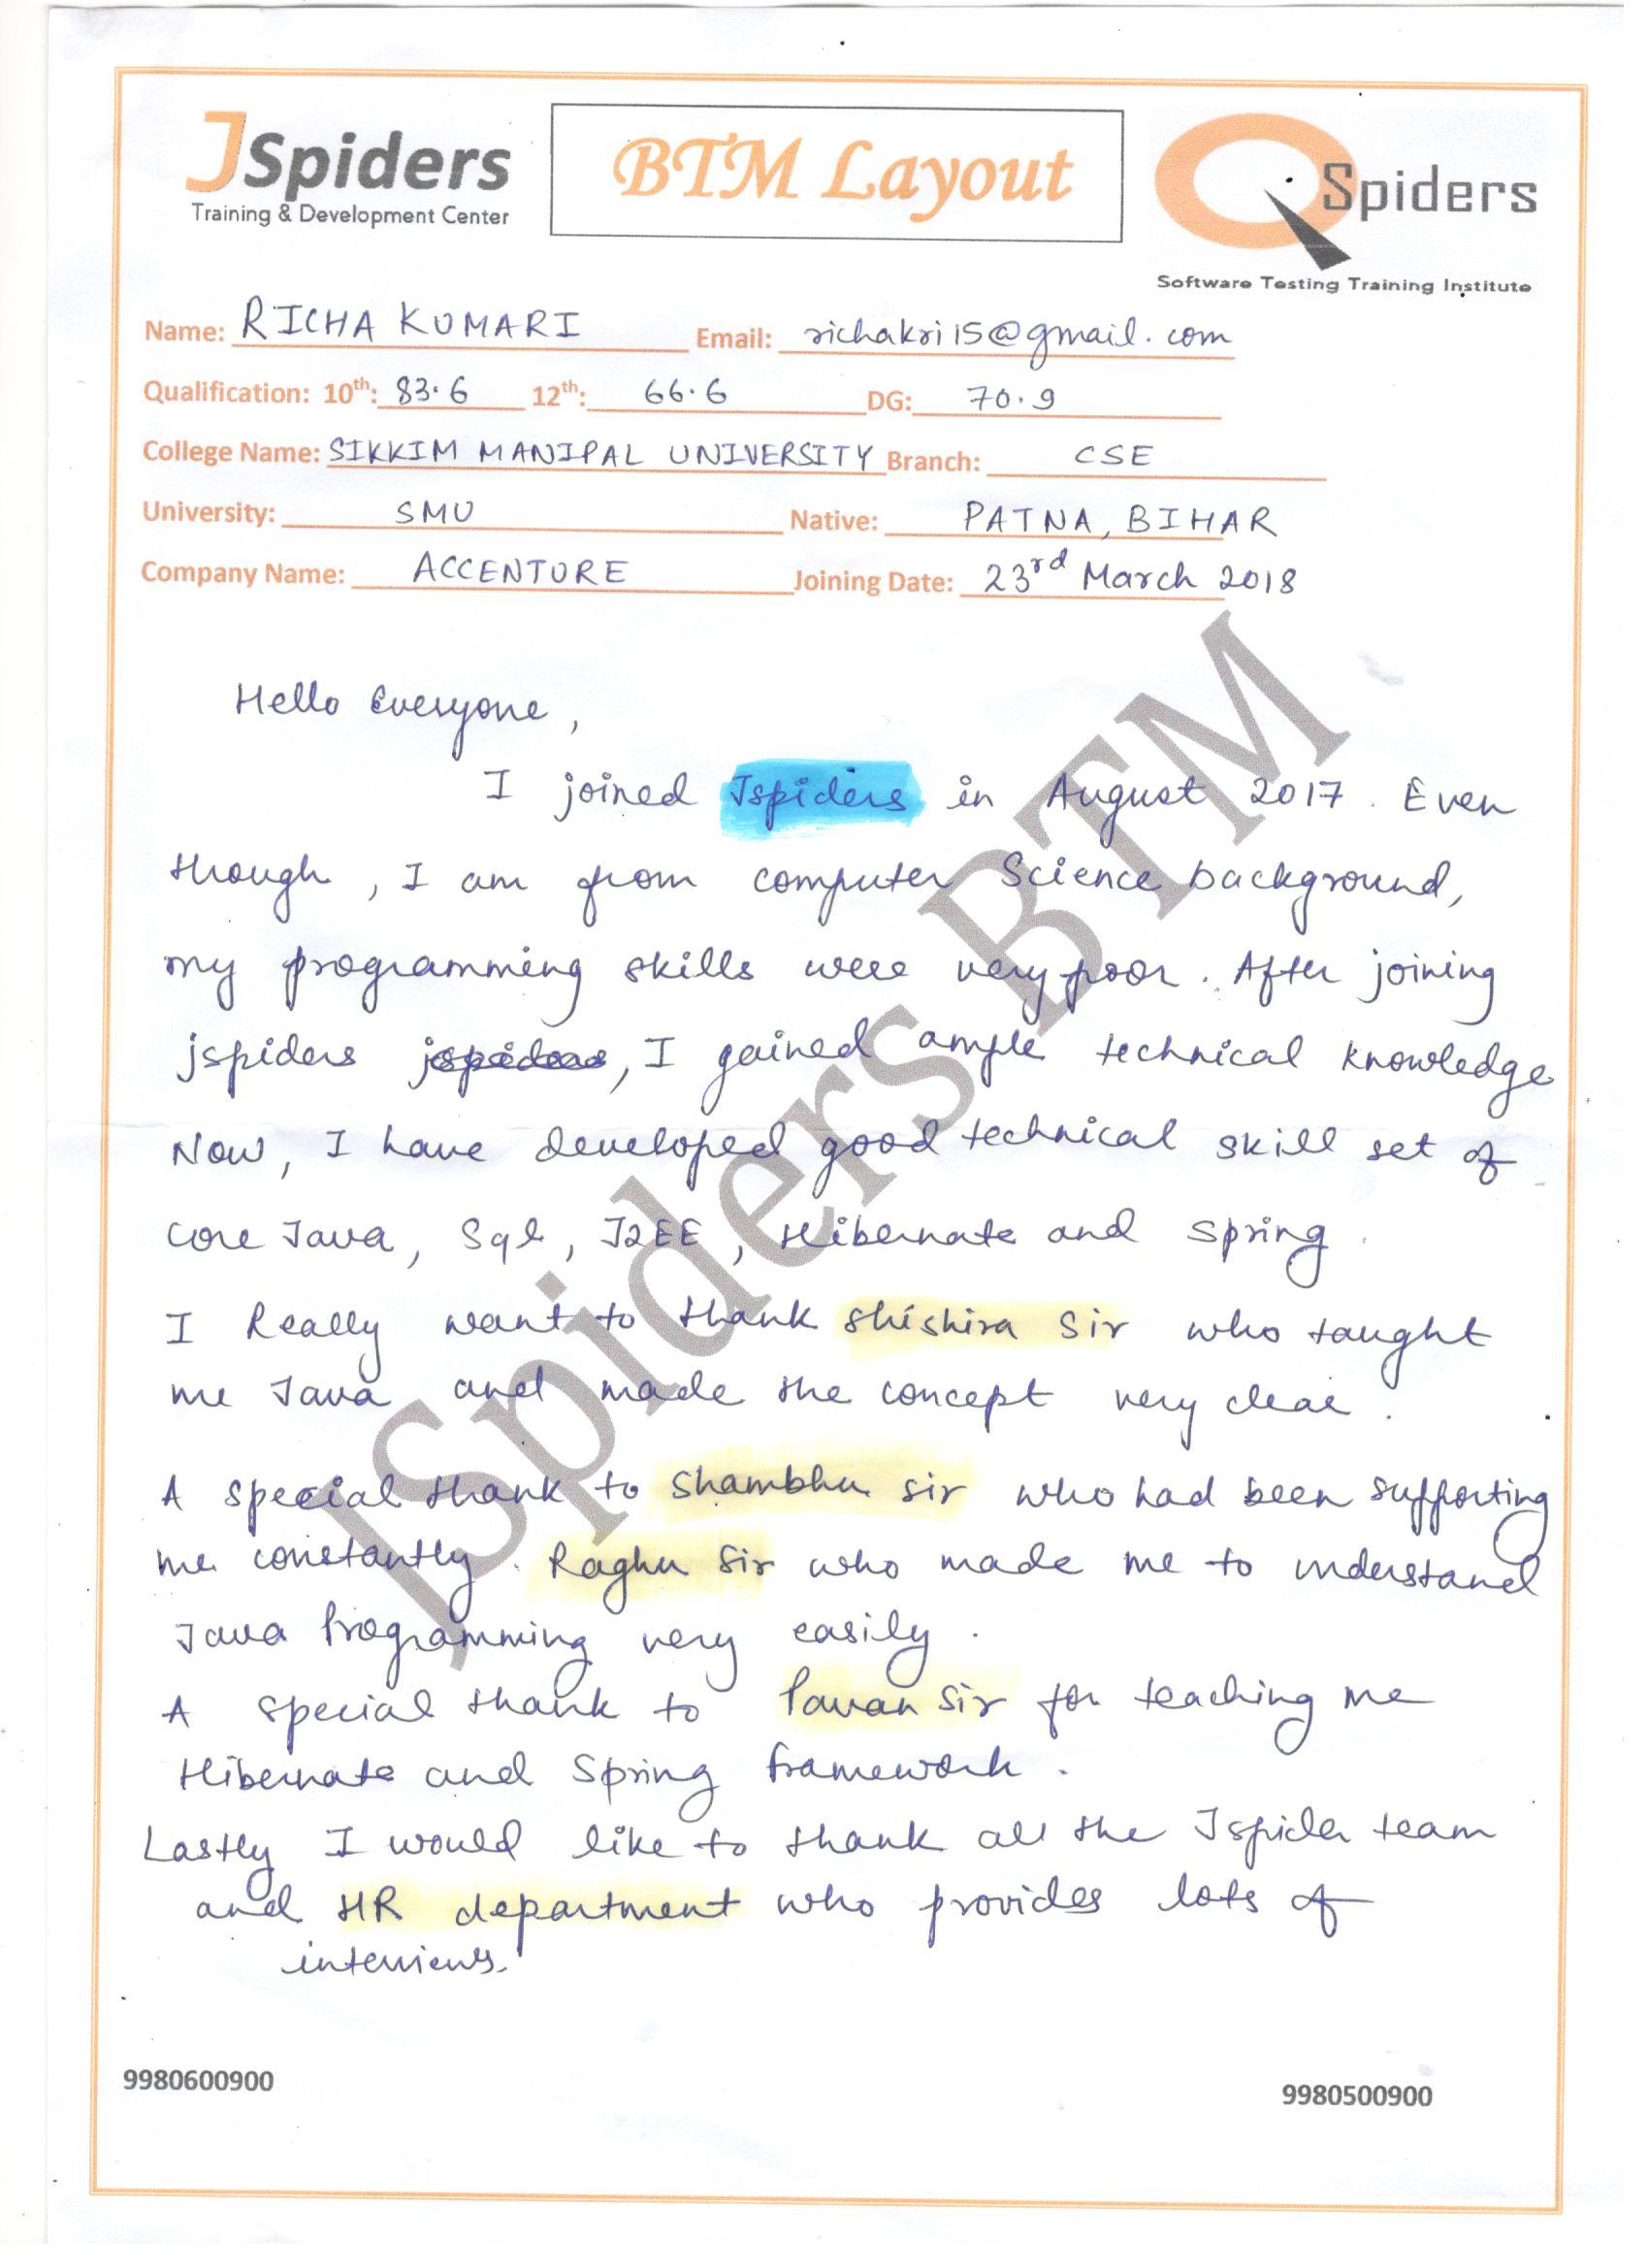 JSpiders
Training & Development Center
BTM Layout
QSpiders
Software Testing Training Institute
Name: RICHA KUMARI Email: richakri15@gmail.com
Qualification: 10th: 83.6 12th: 66.6 DG: 70.9
College Name: SIKKIM MANIPAL UNIVERSITY Branch: CSE
University: SMU Native: PATNA, BIHAR
Company Name: ACCENTURE Joining Date: 23rd March 2018
Hello Everyone,
I joined Jspiders in August 2017. Even
though, I am from computer Science background,
my programming skills were very poor. After joining
jspiders jspiders, I gained ample technical knowledge
Now, I have developed good technical skill set of
core Java, Sql, J2EE, Hibernate and spring.
I Really want to thank shishira Sir who taught
me Java and made the concept very clear.
A special thank to Shambhu sir who had been supporting
me constantly. Raghu Sir who made me to understand
Java Programming very easily.
A special thank to Pavan Sir for teaching me
Hibernate and Spring framework.
Lastly I would like to thank all the Jspider team
and HR department who provides lots of
interviews.
JSpiders BTM
9980600900
9980500900